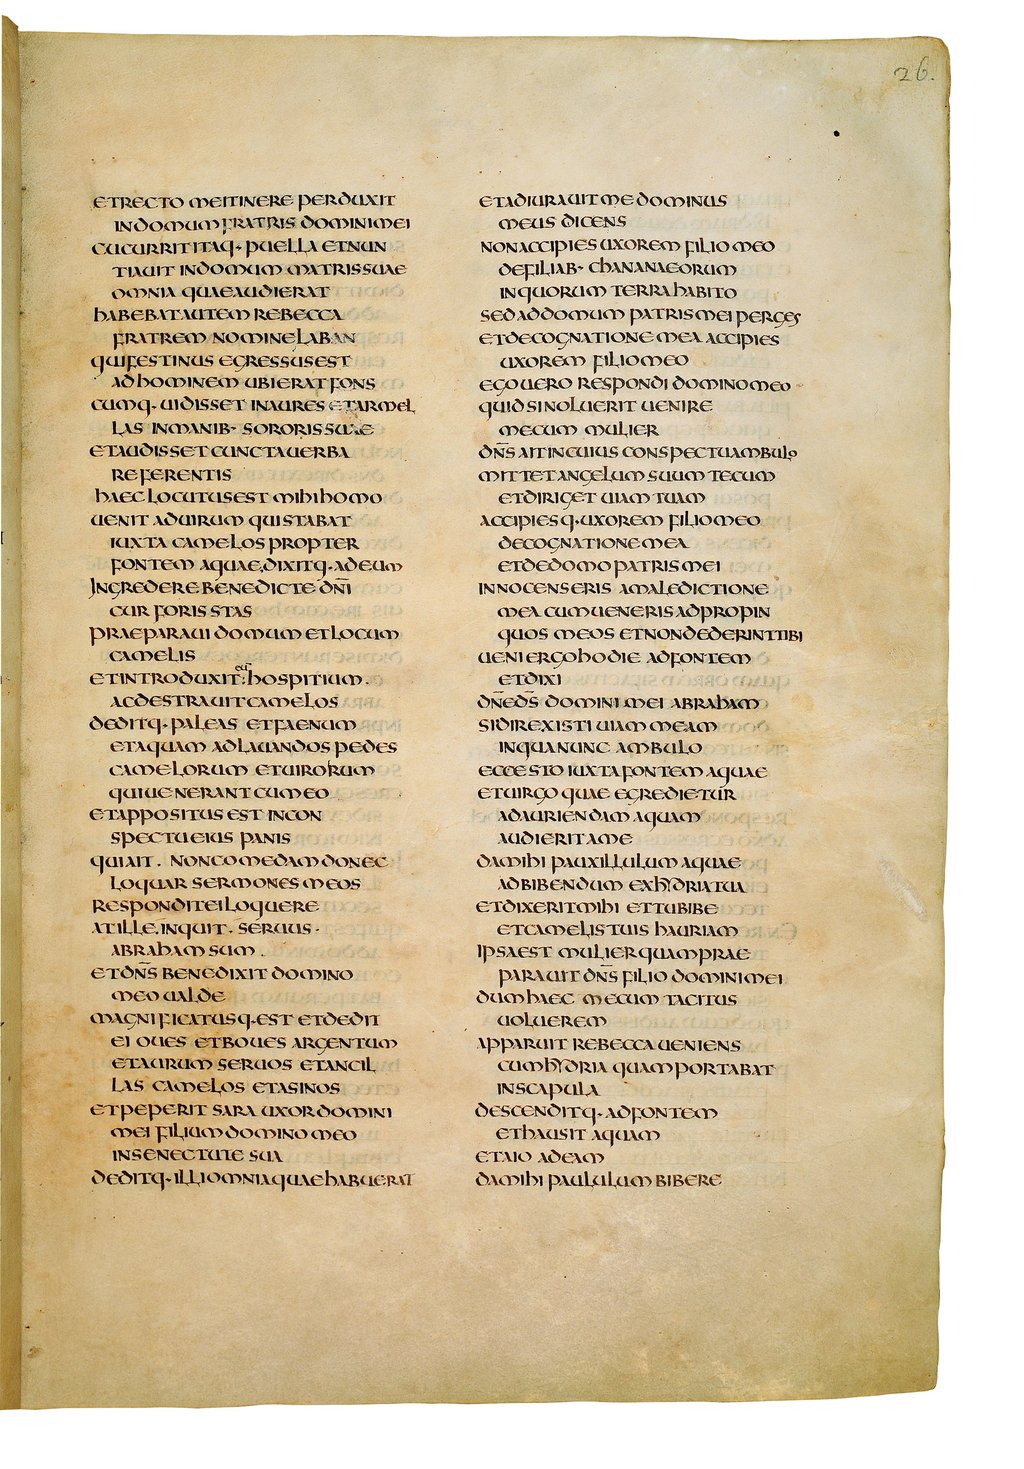 26.
ETRECTO MEITINERE PERDUXIT
INDOMUM FRATRIS DOMINIMEI
CUCURRIT ITAQ· PUELLA ETNUN
TIAUIT INDOMUM MATRISSUAE
OMNIA QUAEAUDIERAT
HABEBATAUTEM REBECCA
FRATREM NOMINELABAN
QUIFESTINUS EGRESSUSEST
ADHOMINEM UBIERATFONS
CUMQ· UIDISSET INAURES ETARMEL
LAS INMANIB· SORORISSUAE
ETAUDISSETCUNCTAUERBA
REFERENTIS
HAECLOCUTUSEST MIHIHOMO
UENIT ADUIRUM QUISTABAT
IUXTA CAMELOSPROPTER
FONTEM AQUAE,DIXITQ·ADEUM
INGREDEREBENEDICTE DN̄I
CUR FORIS STAS
PRAEPARAUI DOMUM ETLOCUM
CAMELIS
ETINTRODUXIT eu HOSPITIUM.
ACDESTRAUITCAMELOS
DEDITQ· PALEAS ETFAENUM
ETAQUAM ADLAUANDOS PEDES
CAMELORUM ETUIRORUM
QUIUENERANTCUMEO
ETAPPOSITUS EST INCON
SPECTUEIUS PANIS
QUIAIT. NONCOMEDAMDONEC
LOQUAR SERMONESMEOS
RESPONDITEILOQUERE
ATILLE.INQUIT. SERUUS·
ABRAHAMSUM.
ETDN̄S BENEDIXIT DOMINO
MEO UALDE
MAGNIFICATUSQ·EST ETDEDIT
EI OUES ETBOUES ARGENTUM
ETAURUM SERUOS ETANCIL
LAS CAMELOS ETASINOS
ETPEPERIT SARA UXORDOMINI
MEI FILIUMDOMINOMEO
INSENECTUTE SUA
DEDITQ·ILLIOMNIAQUAEHABUERAT
ETADIURAUITMEDOMINUS
MEUS DICENS
NONACCIPIESUXOREM FILIOMEO
DEFILIAB· CHANANAEORUM
INQUORUM TERRAHABITO
SEDADDOMUM PATRISMEIPERGES
ETDECOGNATIONEMEA ACCIPIES
UXOREM FILIOMEO
EGOUERO RESPONDI DOMINOMEO
QUIDSINOLUERIT UENIRE
MECUM MULIER
DN̄S AITINCUIUS CONSPECTUAMBULO
MITTETANGELUM SUUM TECUM
ETDIRIGET UIAM TUAM
ACCIPIESQ·UXOREM FILIOMEO
DECOGNATIONEMEA
ETDEDOMOPATRISMEI
INNOCENSERIS AMALEDICTIONE
MEA CUMUENERISADPROPIN
QUOS MEOS ETNONDEDERINTTIBI
UENIERGOHODIE ADFONTEM
ETDIXI
DN̄EDS̄ DOMINIMEI ABRAHAM
SIDIREXISTI UIAM MEAM
INQUANUNC AMBULO
ECCESTO IUXTAFONTEMAQUAE
ETUIRGOQUAE EGREDIETUR
ADAURIENDAMAQUAM
AUDIERITAME
DAMIHI PAUXILLULUMAQUAE
ADBIBENDUM EXHYDRIATUA
ETDIXERITMIHI ETTUBIBE
ETCAMELISTUIS HAURIAM
IPSAEST MULIERQUAMPRAE
PARAUITDN̄S FILIO DOMINIMEI
DUMHAEC MECUM TACITUS
UOLUEREM
APPARUIT REBECCAUENIENS
CUMHYDRIA QUAMPORTABAT
INSCAPULA
DESCENDITQ·ADFONTEM
ETHAUSIT AQUAM
ETAIO ADEAM
DAMIHI PAULULUMBIBERE